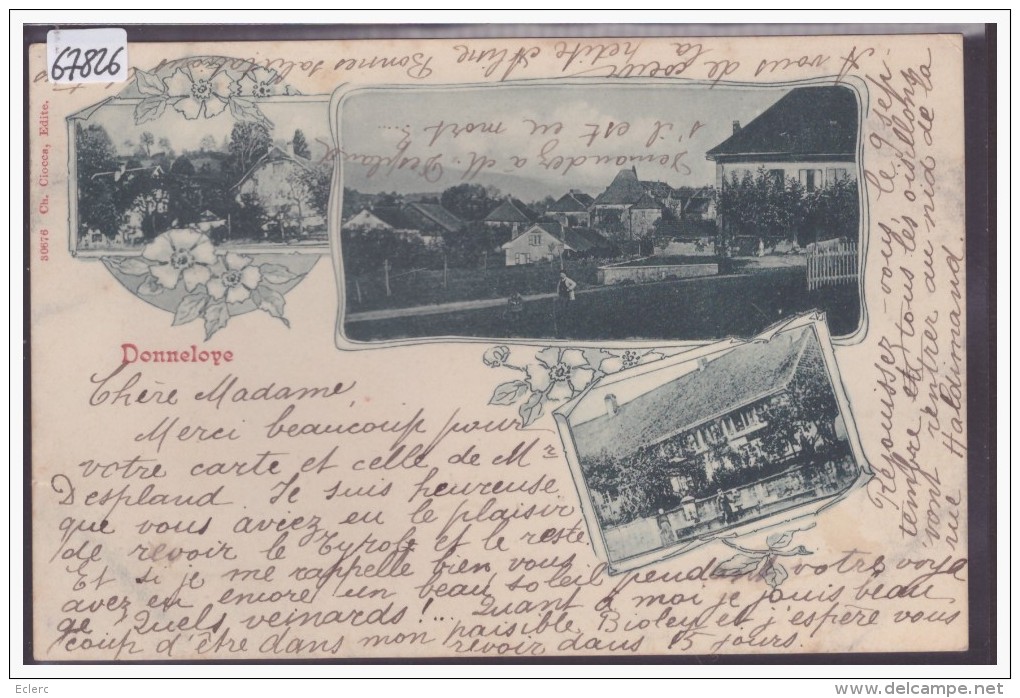 67826
30676 Ch. Ciocca, Edite.
Donneloye
Chère Madame,
Merci beaucoup pour
votre carte et celle de Me
Despland Je suis heureuse
que vous aviez eu le plaisir
de revoir le Tyrol et le reste
Et si je me rappelle bien vous
avez eu encore un beau soleil pendant votre voya
ge Quels veinards!... Quant à moi je jouis beau
coup d'être dans mon paisible Bioley et j'espère vous
revoir dans 15 jours.
Réjouissez-vous, le 9 sep
tembre et tous les oisillons
vont rentrer au nid de la
rue Haldimand.
A vous de coeur
la petite Aline Bonnes salutations
Demandez à M. Despland
s'il est en mort
Eclerc
www.delcampe.net